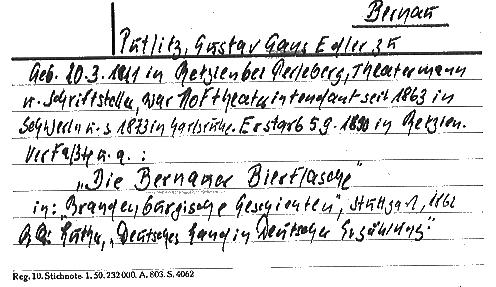 Bernau
Putlitz, Gustav Gans Edler zu
Geb. 20.3.1821 in Retzien bei Perleberg, Theatermann
u. Schriftsteller, war Hoftheaterintendant seit 1863 in
Schwerin u. s 1873 in Karlsruhe. Er starb 5.9.1890 in Retzien.
Verfaßte u.a.:
„Die Bernauer Bierflasche"
in: „Brandenburgische Geschichten", Stuttgart, 1862
Luther, „Deutsches Land in Deutscher Erzählung"
Reg. 10. Stichnote. 1. 50. 232000. A. 803. S. 4062